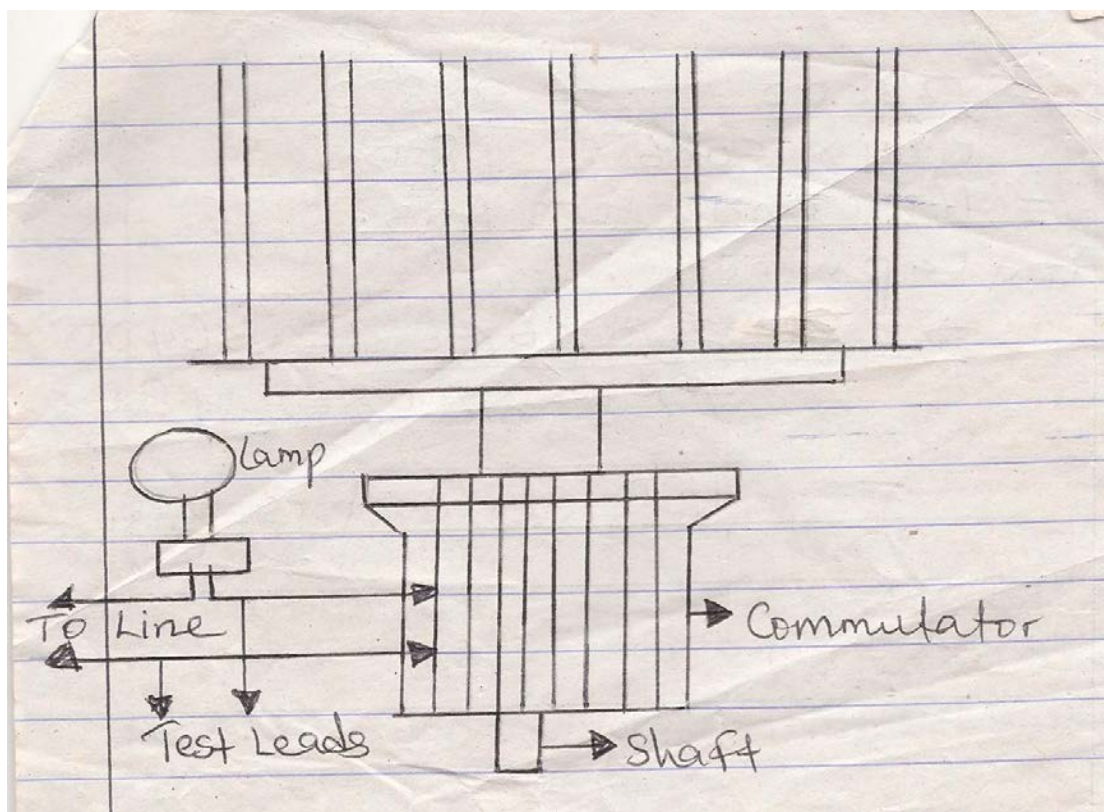 Lamp
To Line
Commutator
Test Leads
Shaft